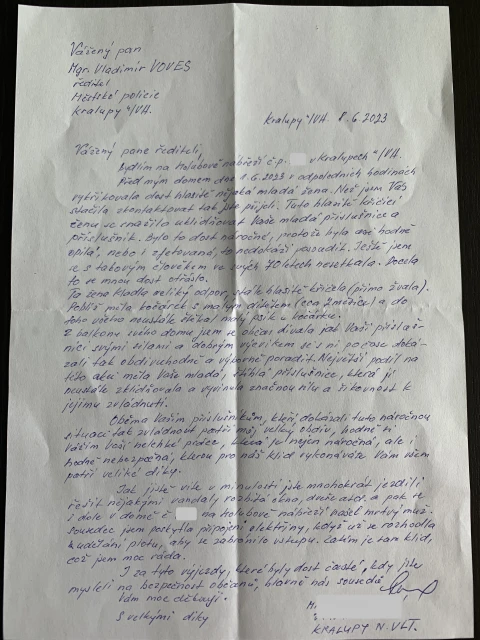 Vážený pan
Mgr. Vladimír VOVES
ředitel
Městské policie
Kralupy n/Vlt.
Kralupy n/Vlt. 8.6.2023
Vážený pane řediteli,
bydlím na Holubově nábřeží č.p. v Kralupech n/Vlt.
Před mým domem dne 1.6.2023 v odpoledních hodinách
vykřikovala dost hlasitě nějaká mladá žena. Než jsem Vás
stačila zkontaktovat, tak jste přijeli. Tuto hlasitě křičící
ženu se snažila uklidňovat Vaše mladá příslušnice a
příslušník. Bylo to dost náročné, protože byla asi hodně
opilá, nebo i zfetovaná, to nedokáži posoudit. Ještě jsem
se s takovým člověkem ve svých 70 letech nesetkala. Docela
to se mnou dost otřáslo.
Ta žena kladla veliký odpor, stále hlasitě křičela (přímo řvala).
Poblíž měla kočárek s malým dítětem (cca 2 měsíce) a do
toho všeho neustále štěkal malý psík v kočárku.
Z balkonu svého domu jsem se občas dívala jak Vaši přísluš-
níci svými silami a dobrým vyjevikem se s ní po čase doká-
zali tak obdivuhodně a výborně poradit. Největší podíl na
této akci měla Vaše mladá, štíhlá příslušnice, která ji
neustále zklidňovala a vyvinula značnou sílu a šikovnost k
jejímu zvládnutí.
Oběma Vašim příslušníkům, kteří dokázali tuto náročnou
situaci tak zvládnout patří můj velký obdiv, hodně si
vážím Vaší nelehké práce, která je nejen náročná, ale i
hodně nebezpečná, kterou pro náš klid vykonáváte. Vám všem
patří veliké díky.
Jak jistě víte v minulosti jste mnohokrát jezdili
řešit nějakými vandaly rozbitá okna, dveře atd. a pak se
i dole v domě č. na Holubově nábřeží našel mrtvý muž.
Sousedce jsem poskytla připojení elektřiny, když už se rozhodla
k udělání plotu, aby se zabránilo vstupu. Zatím je tam klid,
což jsem moc ráda.
I za tyto výjezdy, které byly dost časté, kdy jste
mysleli na bezpečnost občanů, hlavně nás sousedů
Vám moc děkuji.
S velkými díky
KRALUPY N. VLT.